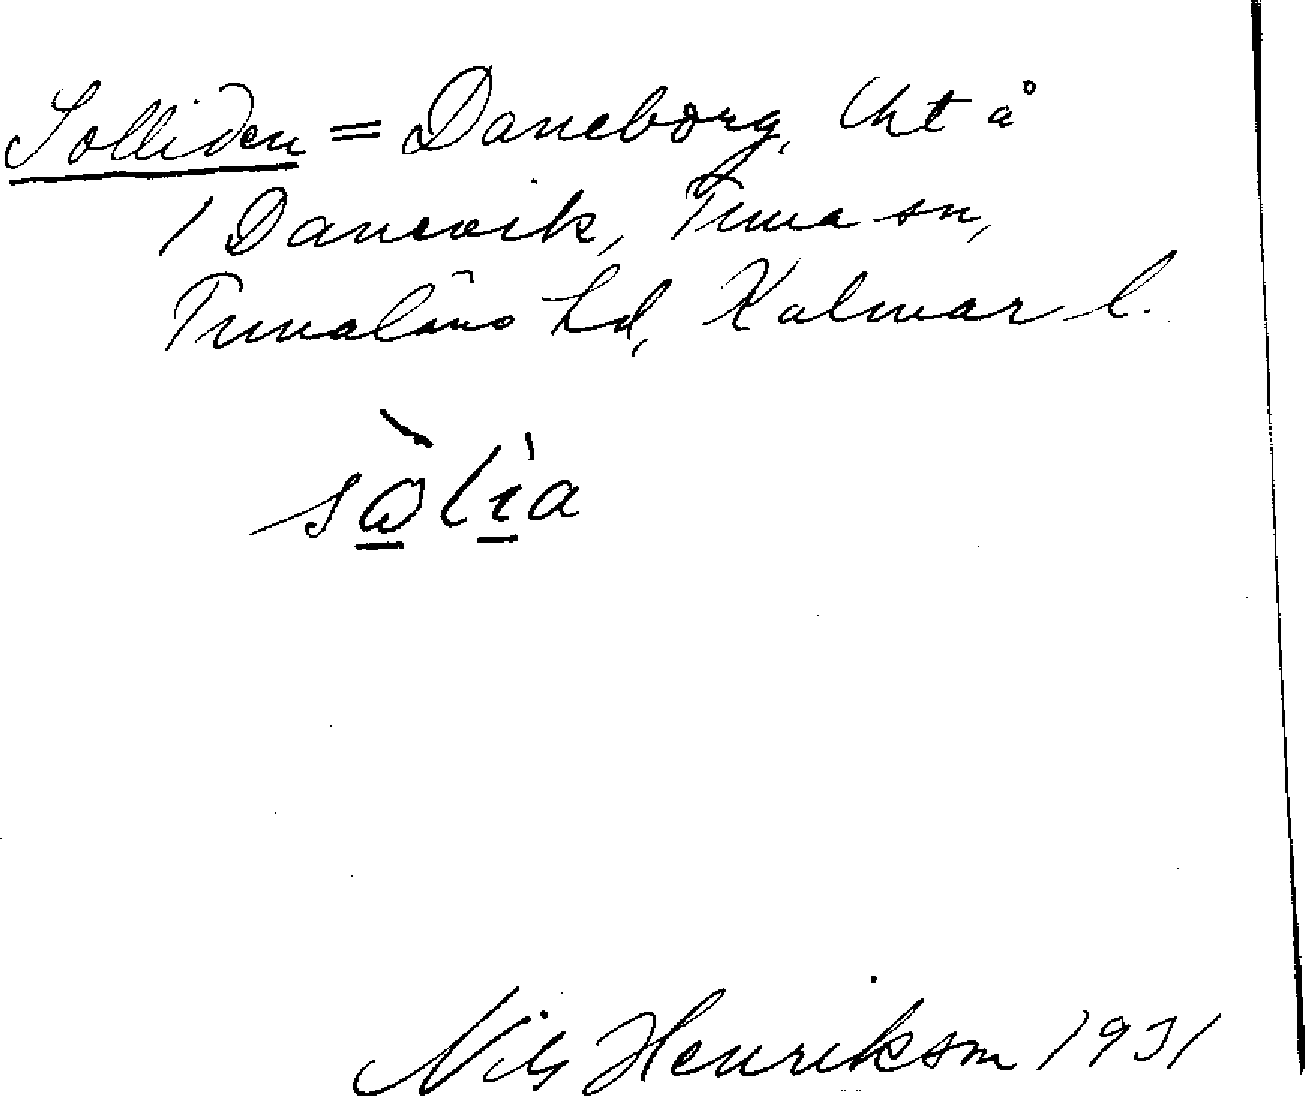 Solliden = Daneborg, lht å
1 Danevik, Tuna sn,
Tunaläns hd, Kalmar l.
sòlia
Nils Henrikson 1931